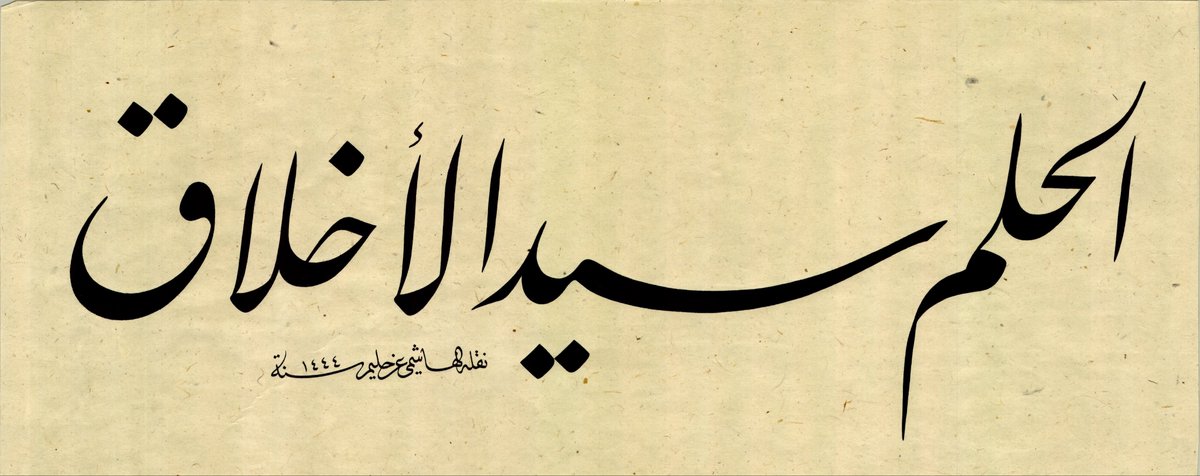 الحلم سيد الأخلاق
نقله الهاشمي عن حليم سنة ١٤٤٤